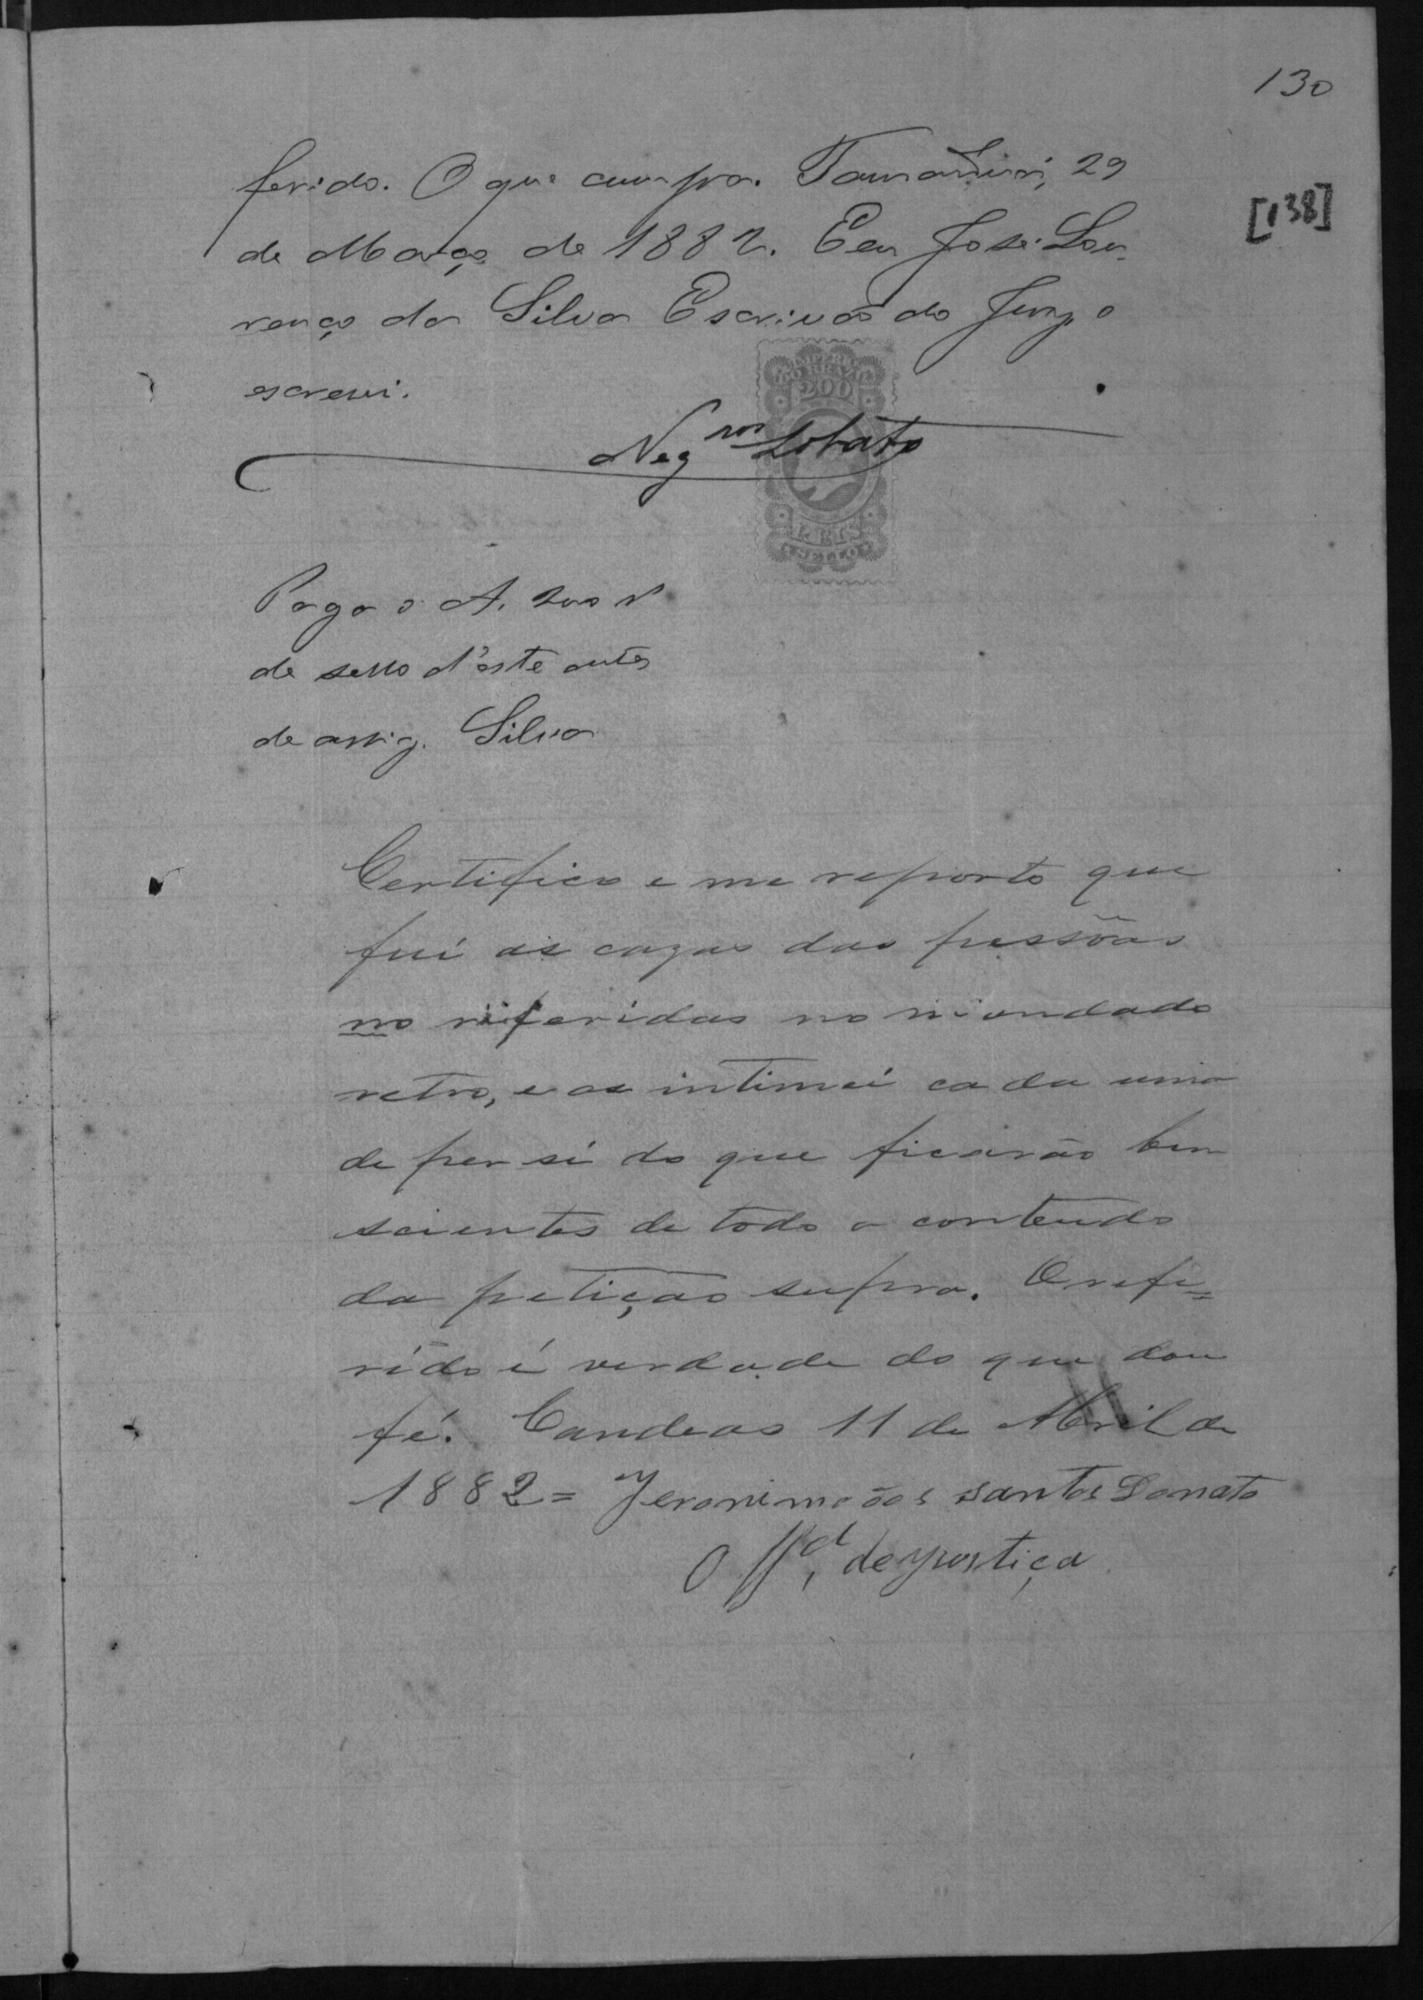 130
[138]
ferido. O que cumpra. Tamanduá, 29
de Março de 1882. Eu José Lou
renço da Silva Escrivão do Juizo
escrevi.
IMPERIO
DO BRAZIL
200
Neg.ros Lobato
REIS
SELLO
Paga o A. 200 r
de sello d'este antes
de assig. Silva
Certifico e me reporto que
fui as cazas das pessôas
no referidas no mandado
retro, e as intimei cada uma
de per si do que ficarão bem
scientes de todo o contendo
da petição supra. O refe=
rido é verdade do que dou
fé. Candeas 11 de Abril de
1882= Jeronimo dos santos Donato
Off.al de Justiça